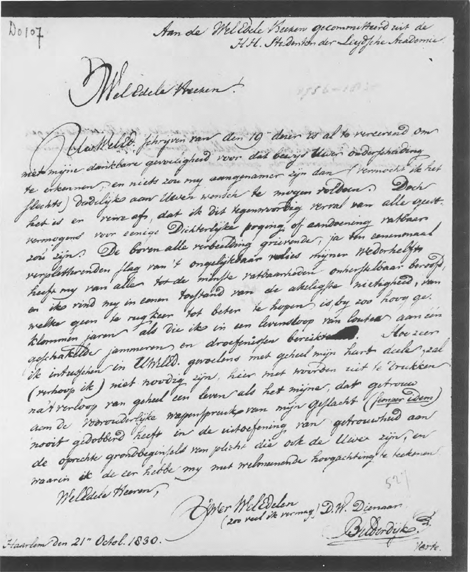 Do107
Aan de WelEdele Heeren gecommitteerd uit de
H.H. Studenten der Leydsche Academie
WelEdele Heeren!
UwerWelEd. schrijven van den 19 dezer is al te vereerend om
niet mijne dankbare gevoeligheid voor dat bewijs Uwer onderscheiding
te erkennen; en niets zou my aangenamer zijn dan (vermocht ik het
slechts) dadelijk aan Uwen wensch te mogen voldoen. Doch
het is er verre af, dat ik dit tegenwoordig verval van alle geest-
vermogens voor eenige Dichterlijke poging of aandoening vatbaar
zou zijn. De boven alle verbeelding grievende, ja ten eenenmaal
verpletterenden slag van 't ongelijkbaar verlies mijner Wederhelfte
heeft my van alle tot de minste vatbaarheden onherstelbaar beroofd,
en ik vind my in eenen toestand van de akeligste nietigheid, van
welke geen te rug keer tot beter te hopen is by zoo hoog ge-
klommen jaren als die ik in een levensloop van louter aan één
geschakelde jammeren en droefenissen bereikte. Hoe zeer
ik intusschen in UwelEd. gevoelens met geheel mijn hart deele, zal
(verhoop ik) niet noodig zijn, hier met woorden uit te drukken
na 't verloop van geheel een leven als het mijne, dat getrouw
aan de Voorouderlijke wapenspreuk van mijn geslacht (semper idem)
nooit gedobberd heeft in de uitoefening van getrouwheid aan
de oprechte grondbeginsels van plicht die ook de Uwe zijn, en
waarin ik de eer hebbe my met welmeenende hoogachting te teekenen
WelEdele Heeren,
Uwer WelEdelen
(zoo veel ik vermag) D.W. Dienaar
Bilderdijk
Haarlem den 21n Octob. 1830.